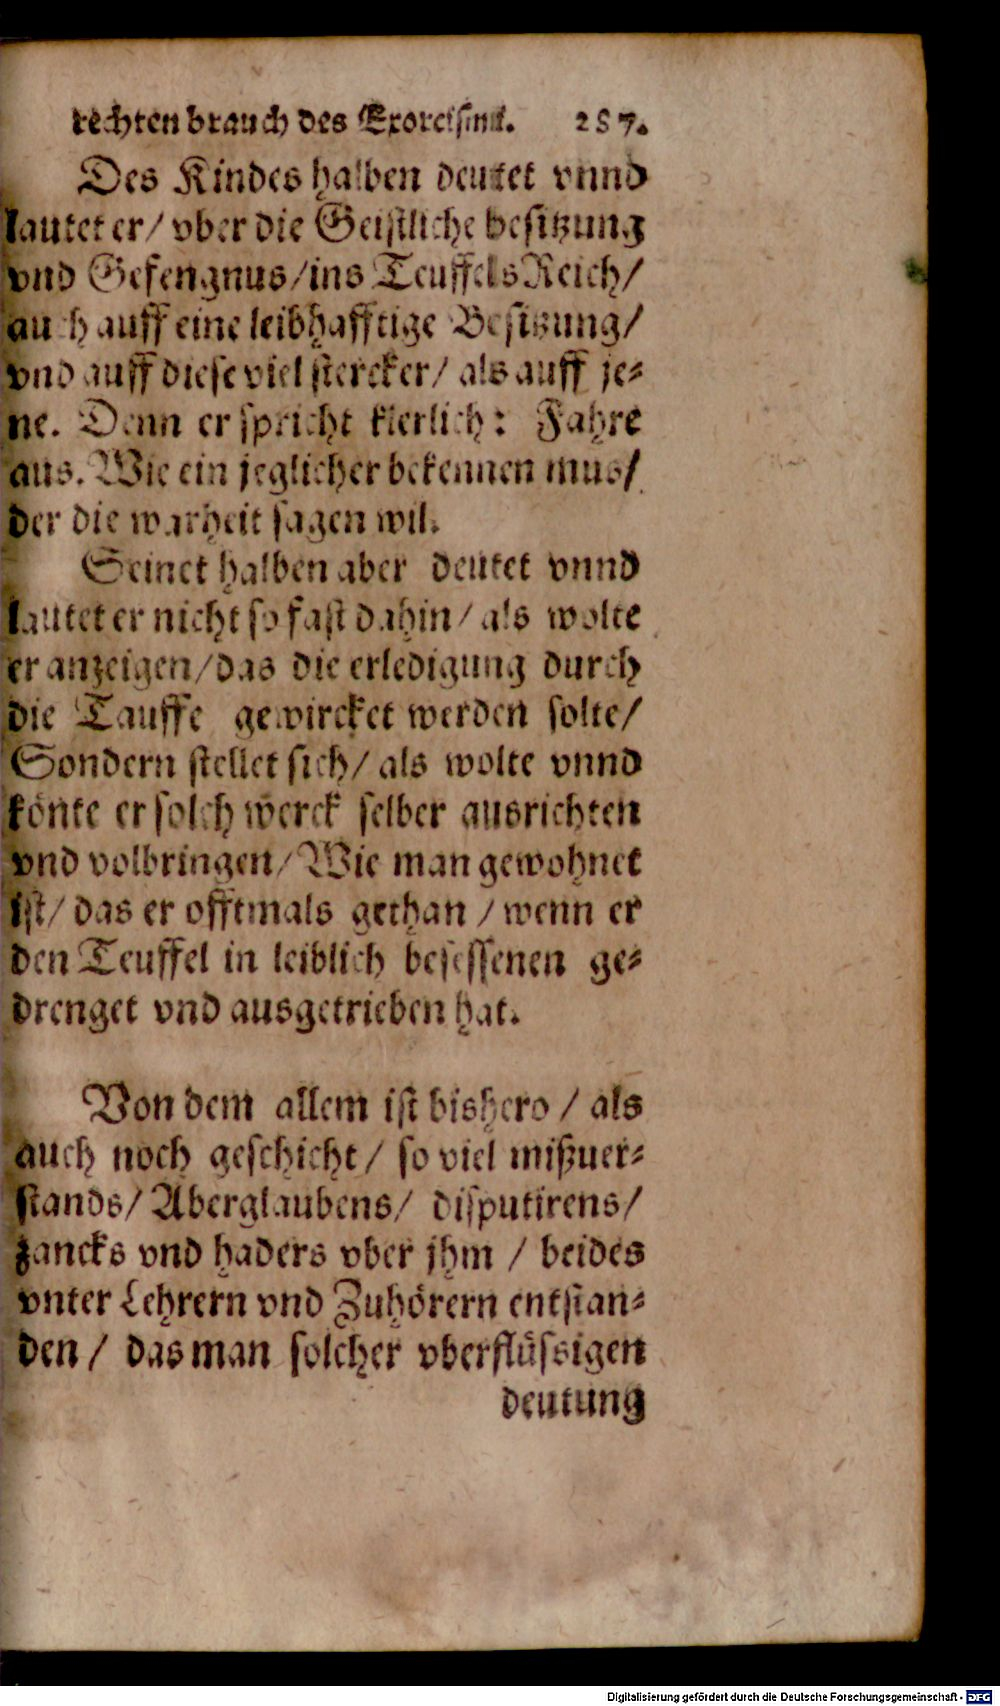 rechten brauch des Exorcismi. 287.
Des Kindes halben deutet vnnd
lautet er/ vber die Geistliche besitzung
vnd Gefengnus/ins Teuffels Reich/
auch auff eine leibhafftige Besitzung/
vnd auff diese viel stercker/ als auff je⸗
ne. Denn er spricht klerlich: Fahre
aus. Wie ein jeglicher bekennen mus/
der die warheit sagen wil.
Seinet halben aber deutet vnnd
lautet er nicht so fast dahin/ als wolte
er anzeigen/das die erledigung durch
die Tauffe gewircket werden solte/
Sondern stellet sich/ als wolte vnnd
könte er solch werck selber ausrichten
vnd volbringen/ Wie man gewohnet
ist/ das er offtmals gethan / wenn er
den Teuffel in leiblich besessenen ge⸗
drenget vnd ausgetrieben hat.
Von dem allem ist bishero / als
auch noch geschicht/ so viel mißuer⸗
stands/ Aberglaubens/ disputirens/
zancks vnd haders vber jhm / beides
vnter Lehrern vnd Zuhörern entstan⸗
den / das man solcher vberflüssigen
deutung
Digitalisierung gefördert durch die Deutsche Forschungsgemeinschaft - DFG